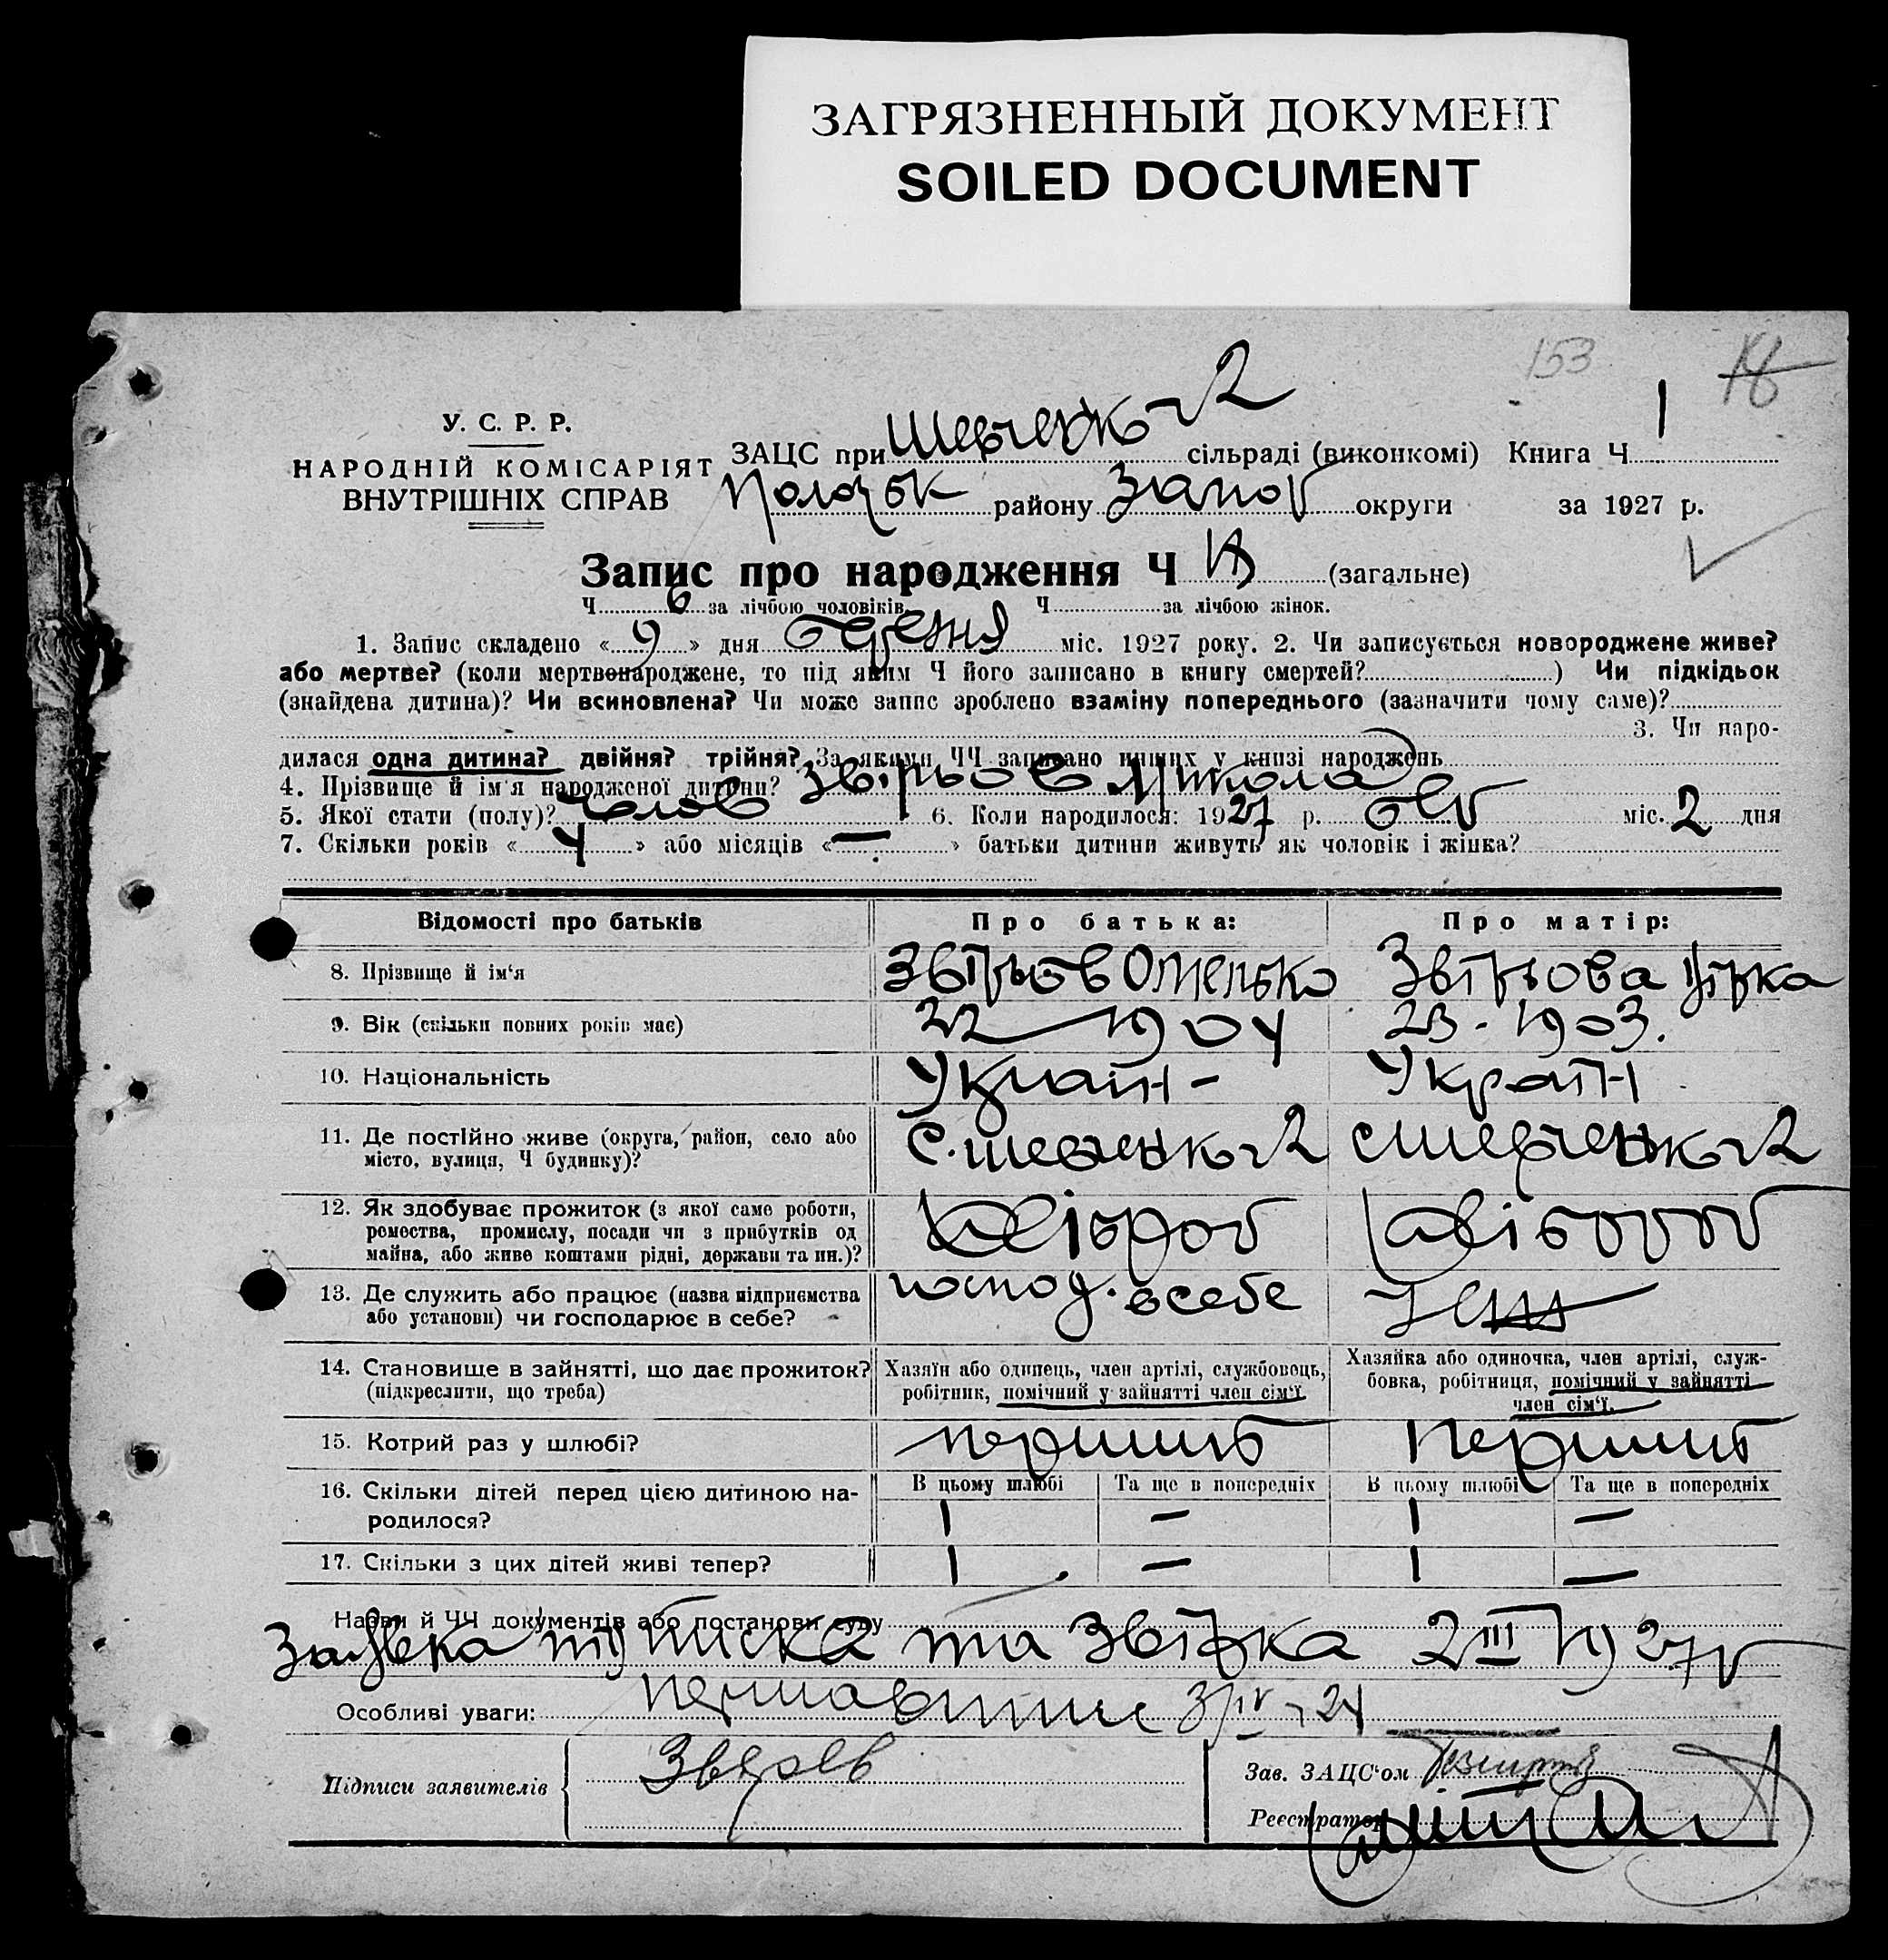 ЗАГРЯЗНЕННЫЙ ДОКУМЕНТ
SOILED DOCUMENT
153
У. С. Р. Р.
НАРОДНІЙ КОМІСАРІЯТ
ВНУТРІШНІХ СПРАВ
ЗАЦС при сільраді (виконкомі) Книга Ч 1
району Запор округи за 1927 р.
Запис про народження Ч (загальне)
Ч 6 за лічбою чоловіків Ч за лічбою жінок.
1. Запис складено « 9 » дня березня міс. 1927 року. 2. Чи записується новороджене живе?
або мертве? (коли мертвенароджене, то під яким Ч його записано в книгу смертей? ) Чи підкідьок
(знайдена дитина)? Чи всиновлена? Чи може запис зроблено взаміну попереднього (зазначити чому саме)?
3. Чи наро-
дилася одна дитина? двійня? трійня? За якими ЧЧ записано инших у книзі народжень
4. Прізвище й ім'я народженої дитини? Звірьов Микола
5. Якої стати (полу)? чолов 6. Коли народилося: 1927 р. міс. 2 дня
7. Скільки років « 4 » або місяців « — » батьки дитини живуть як чоловік і жінка?
Відомості про батьків Про батька: Про матір:
8. Прізвище й ім'я Звірьов Омелько Звірьова
9. Вік (скільки повних років має) 22 1904 23 - 1903.
10. Національність Україн - Україн
11. Де постійно живе (округа, район, село або
місто, вулиця, Ч будинку)?
12. Як здобуває прожиток (з якої саме роботи,
ремества, промислу, посади чи з прибутків од
майна, або живе коштами рідні, держави та ин.)? хлібороб хлібороб
13. Де служить або працює (назва підприємства
або установи) чи господарює в себе? господ. в себе
14. Становище в зайнятті, що дає прожиток?
(підкреслити, що треба)
Хазяїн або одинець, член артілі, службовець,
робітник, помічний у зайнятті член сім'ї
Хазяйка або одиночка, член артілі, служ-
бовка, робітниця, помічний у зайнятті
член сім'ї.
15. Котрий раз у шлюбі? перший перший
16. Скільки дітей перед цією дитиною на-
родилося?
В цьому шлюбі Та ще в попередніх В цьому шлюбі Та ще в попередніх
1 — 1 —
17. Скільки з цих дітей живі тепер? 1 — 1 —
Назви й ЧЧ документів або постанови суду
Заявка підписка та 2 III 1927 р
Особливі уваги:
Підписи заявителів Зверев
Зав. ЗАЦС'ом
Реєстратор